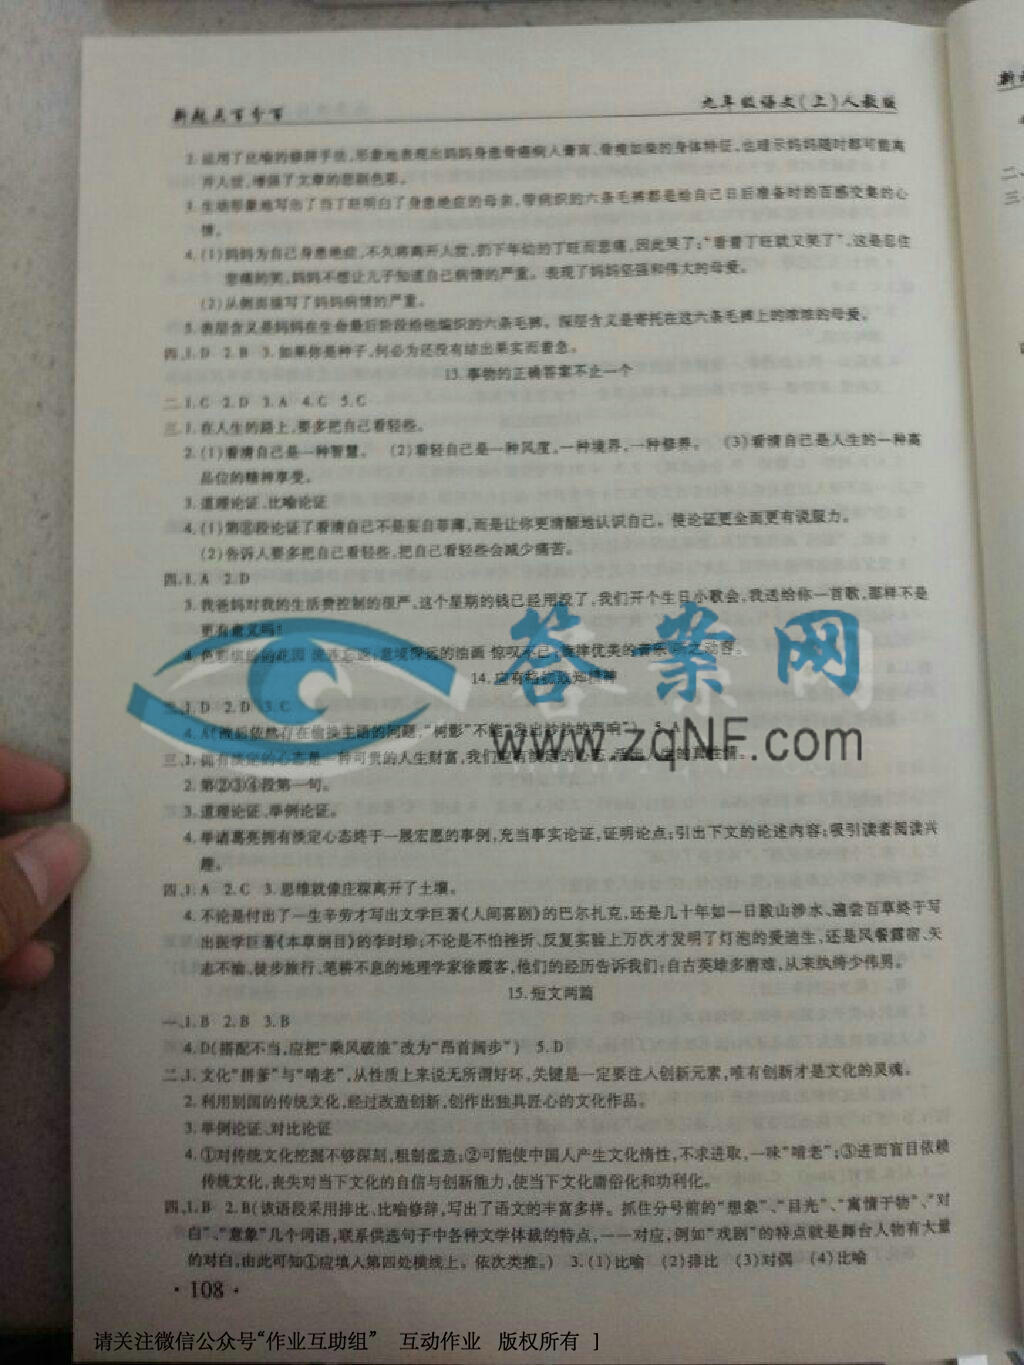 新起点百分百 九年级语文(上)人教版
2.运用了比喻的修辞手法,形象地表现出妈妈身患骨癌病人膏肓、骨瘦如柴的身体特征,也暗示妈妈随时都可能离
开人世,增强了文章的悲剧色彩。
3.生动形象地写出了当丁旺明白了身患绝症的母亲,带病织的六条毛裤都是给自己日后准备时的百感交集的心
情。
4.(1)妈妈为自己身患绝症,不久将离开人世,扔下年幼的丁旺而悲痛,因此哭了;“看着丁旺就又笑了”,这是忍住
悲痛的笑,妈妈不想让儿子知道自己病情的严重。表现了妈妈坚强和伟大的母爱。
(2)从侧面描写了妈妈病情的严重。
5.表层含义是妈妈在生命最后阶段给他编织的六条毛裤。深层含义是寄托在这六条毛裤上的浓浓的母爱。
四、1.D 2.B 3.如果你是种子,何必为还没有结出果实而着急。
13.事物的正确答案不止一个
二、1.C 2.D 3.A 4.C 5.C
三、1.在人生的路上,要多把自己看轻些。
2.(1)看清自己是一种智慧。 (2)看轻自己是一种风度,一种境界,一种修养。 (3)看清自己是人生的一种高
品位的精神享受。
3.道理论证、比喻论证
4.(1)第 段论证了看清自己不是妄自菲薄,而是让你更清醒地认识自己。使论证更全面更有说服力。
(2)告诉人要多把自己看轻些,把自己看轻些会减少痛苦。
四、1.A 2.D
3.我爸妈对我的生活费控制的很严,这个星期的钱已经用没了,我们开个生日小歌会,我送给你一首歌,那样不是
更有意义吗?
4.色彩缤纷的花园 流连忘返;意境深远的油画 惊叹不已;旋律优美的音乐 为之动容。
14.应有格物致知精神
二、1.D 2.D 3.C
4.A(改后依然存在偷换主语的问题,“树影”不能“发出沙沙的声响”) 5.A
三、1.拥有淡定的心态是一种可贵的人生财富,我们应有淡定的心态,活出人生的真性情。
2.第②③④段第一句。
3.道理论证、举例论证。
4.举诸葛亮拥有淡定心态终于一展宏愿的事例,充当事实论证,证明论点;引出下文的论述内容;吸引读者阅读兴
趣。
四、1.A 2.C 3.思维就像庄稼离开了土壤。
4.不论是付出了一生辛劳才写出文学巨著《人间喜剧》的巴尔扎克,还是几十年如一日跋山涉水、遍尝百草终于写
出医学巨著《本草纲目》的李时珍;不论是不怕挫折、反复实验上万次才发明了灯泡的爱迪生,还是风餐露宿、矢
志不渝、徒步旅行、笔耕不息的地理学家徐霞客,他们的经历告诉我们:自古英雄多磨难,从来纨绔少伟男。
15.短文两篇
一、1.B 2.B 3.B
4.D(搭配不当,应把“乘风破浪”改为“昂首阔步”) 5.D
二、1.文化“拼爹”与“啃老”,从性质上来说无所谓好坏,关键是一定要注入创新元素,唯有创新才是文化的灵魂。
2.利用别国的传统文化,经过改造创新,创作出独具匠心的文化作品。
3.举例论证、对比论证
4.①对传统文化挖掘不够深刻,粗制滥造;②可能使中国人产生文化惰性,不求进取,一味“啃老”;③进而盲目依赖
传统文化,丧失对当下文化的自信与创新能力,使当下文化庸俗化和功利化。
四、1.B 2.B(该语段采用排比、比喻修辞,写出了语文的丰富多样。抓住分号前的“想象”、“目光”、“寓情于物”、“对
白”、“意象”几个词语,联系供选句子中各种文学体裁的特点,一一对应,例如“戏剧”的特点就是舞台人物有大量
的对白,由此可知①应填入第四处横线上。依次类推。) 3.(1)比喻 (2)排比 (3)对偶 (4)比喻
·108·
答案网
www.zqNF.com
请关注微信公众号“作业互助组” 互动作业 版权所有 ]